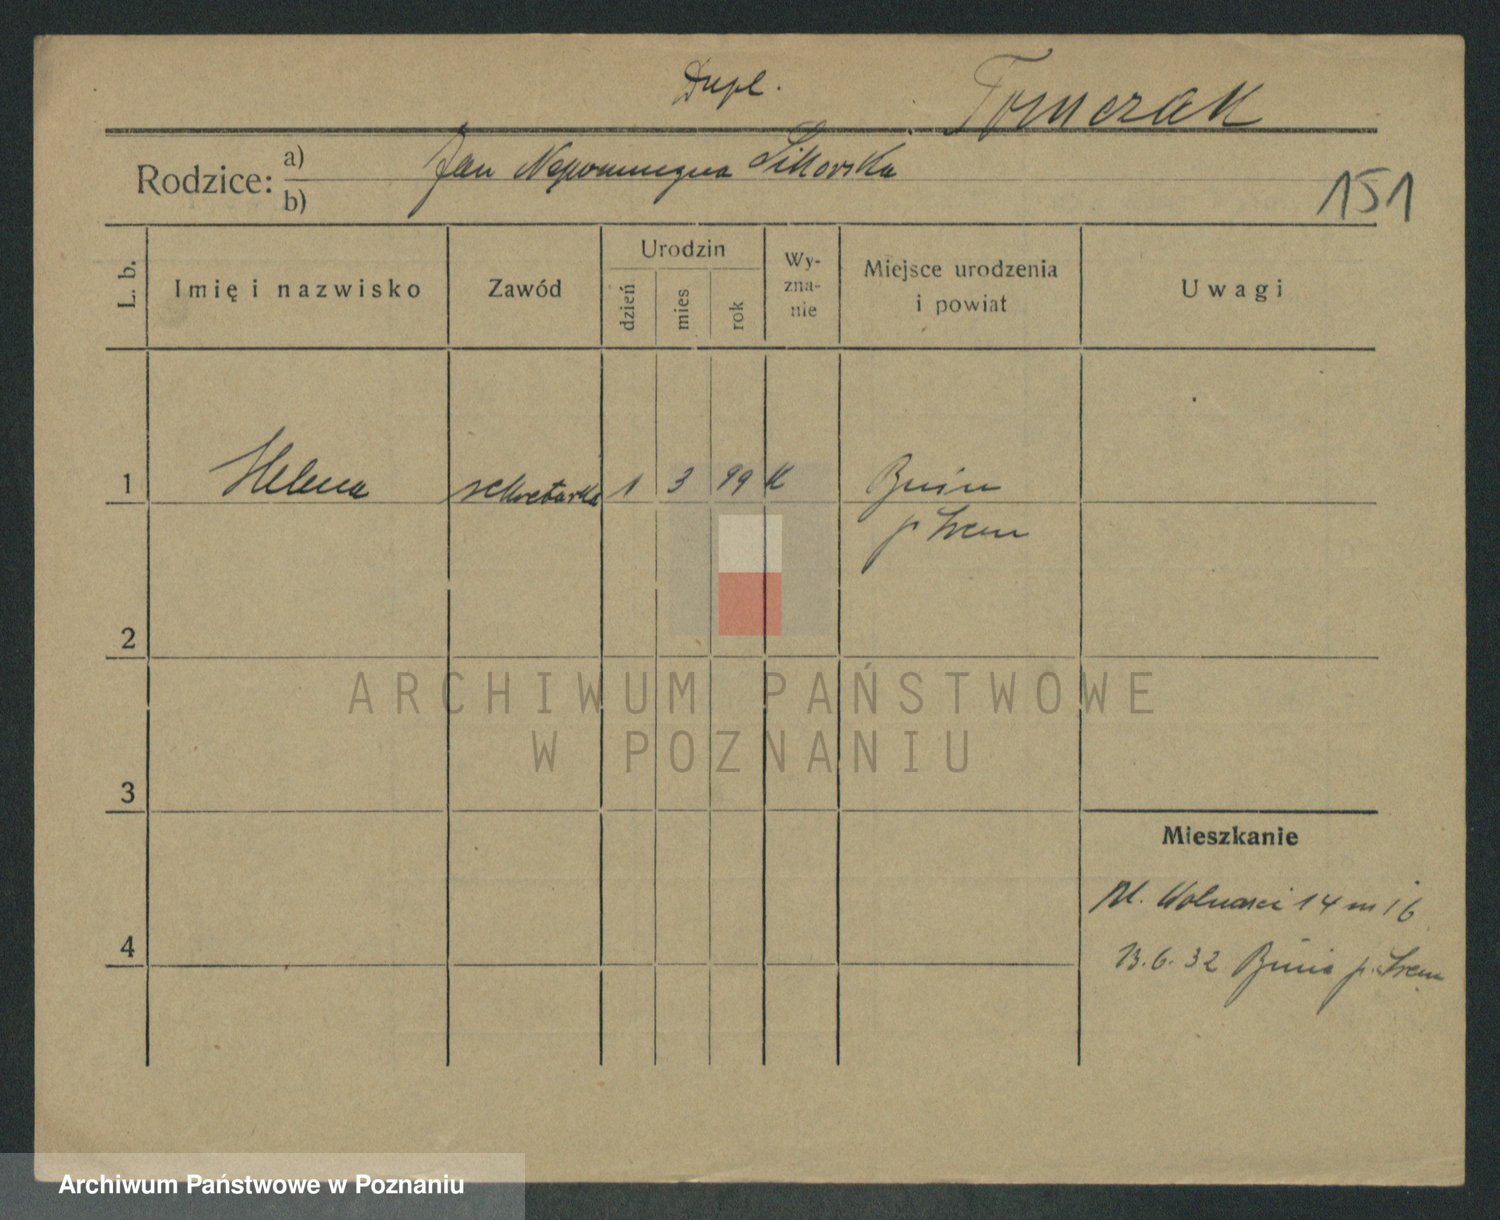 Dupl.
Tomczak
Rodzice: a) b) Jan Nepomucyna Sikorska
151
L. b.
Imię i nazwisko
Zawód
Urodzin
dzień
mies
rok
Wy-
zna-
nie
Miejsce urodzenia
i powiat
Uwagi
1 Helena sekretarka 1 3 99 K Bnin
p Śrem
2
3
4
Mieszkanie
Pl. Wolności 14 m 16
13.6.32 Bnin p. Śrem
ARCHIWUM PAŃSTWOWE
W POZNANIU
Archiwum Państwowe w Poznaniu